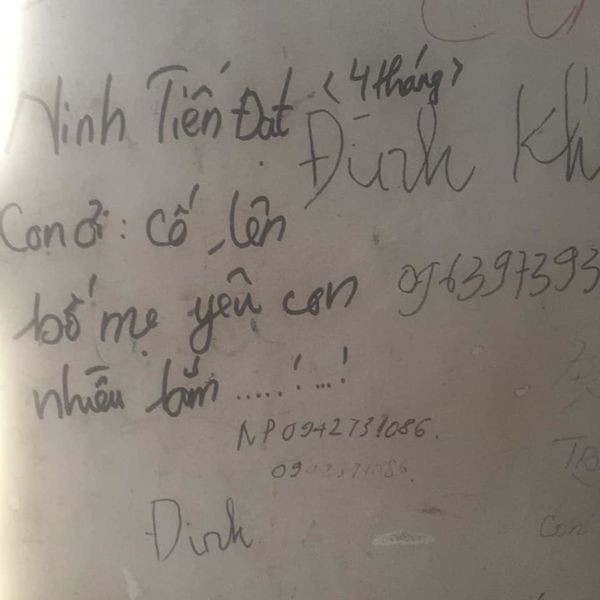 Ninh Tiến Đạt <4 tháng>
Đình Kh
Con ơi: cố lên
bố mẹ yêu con
096397393
nhiều lắm .....! ...!
NP 0942731086.
Đình
TB
Con